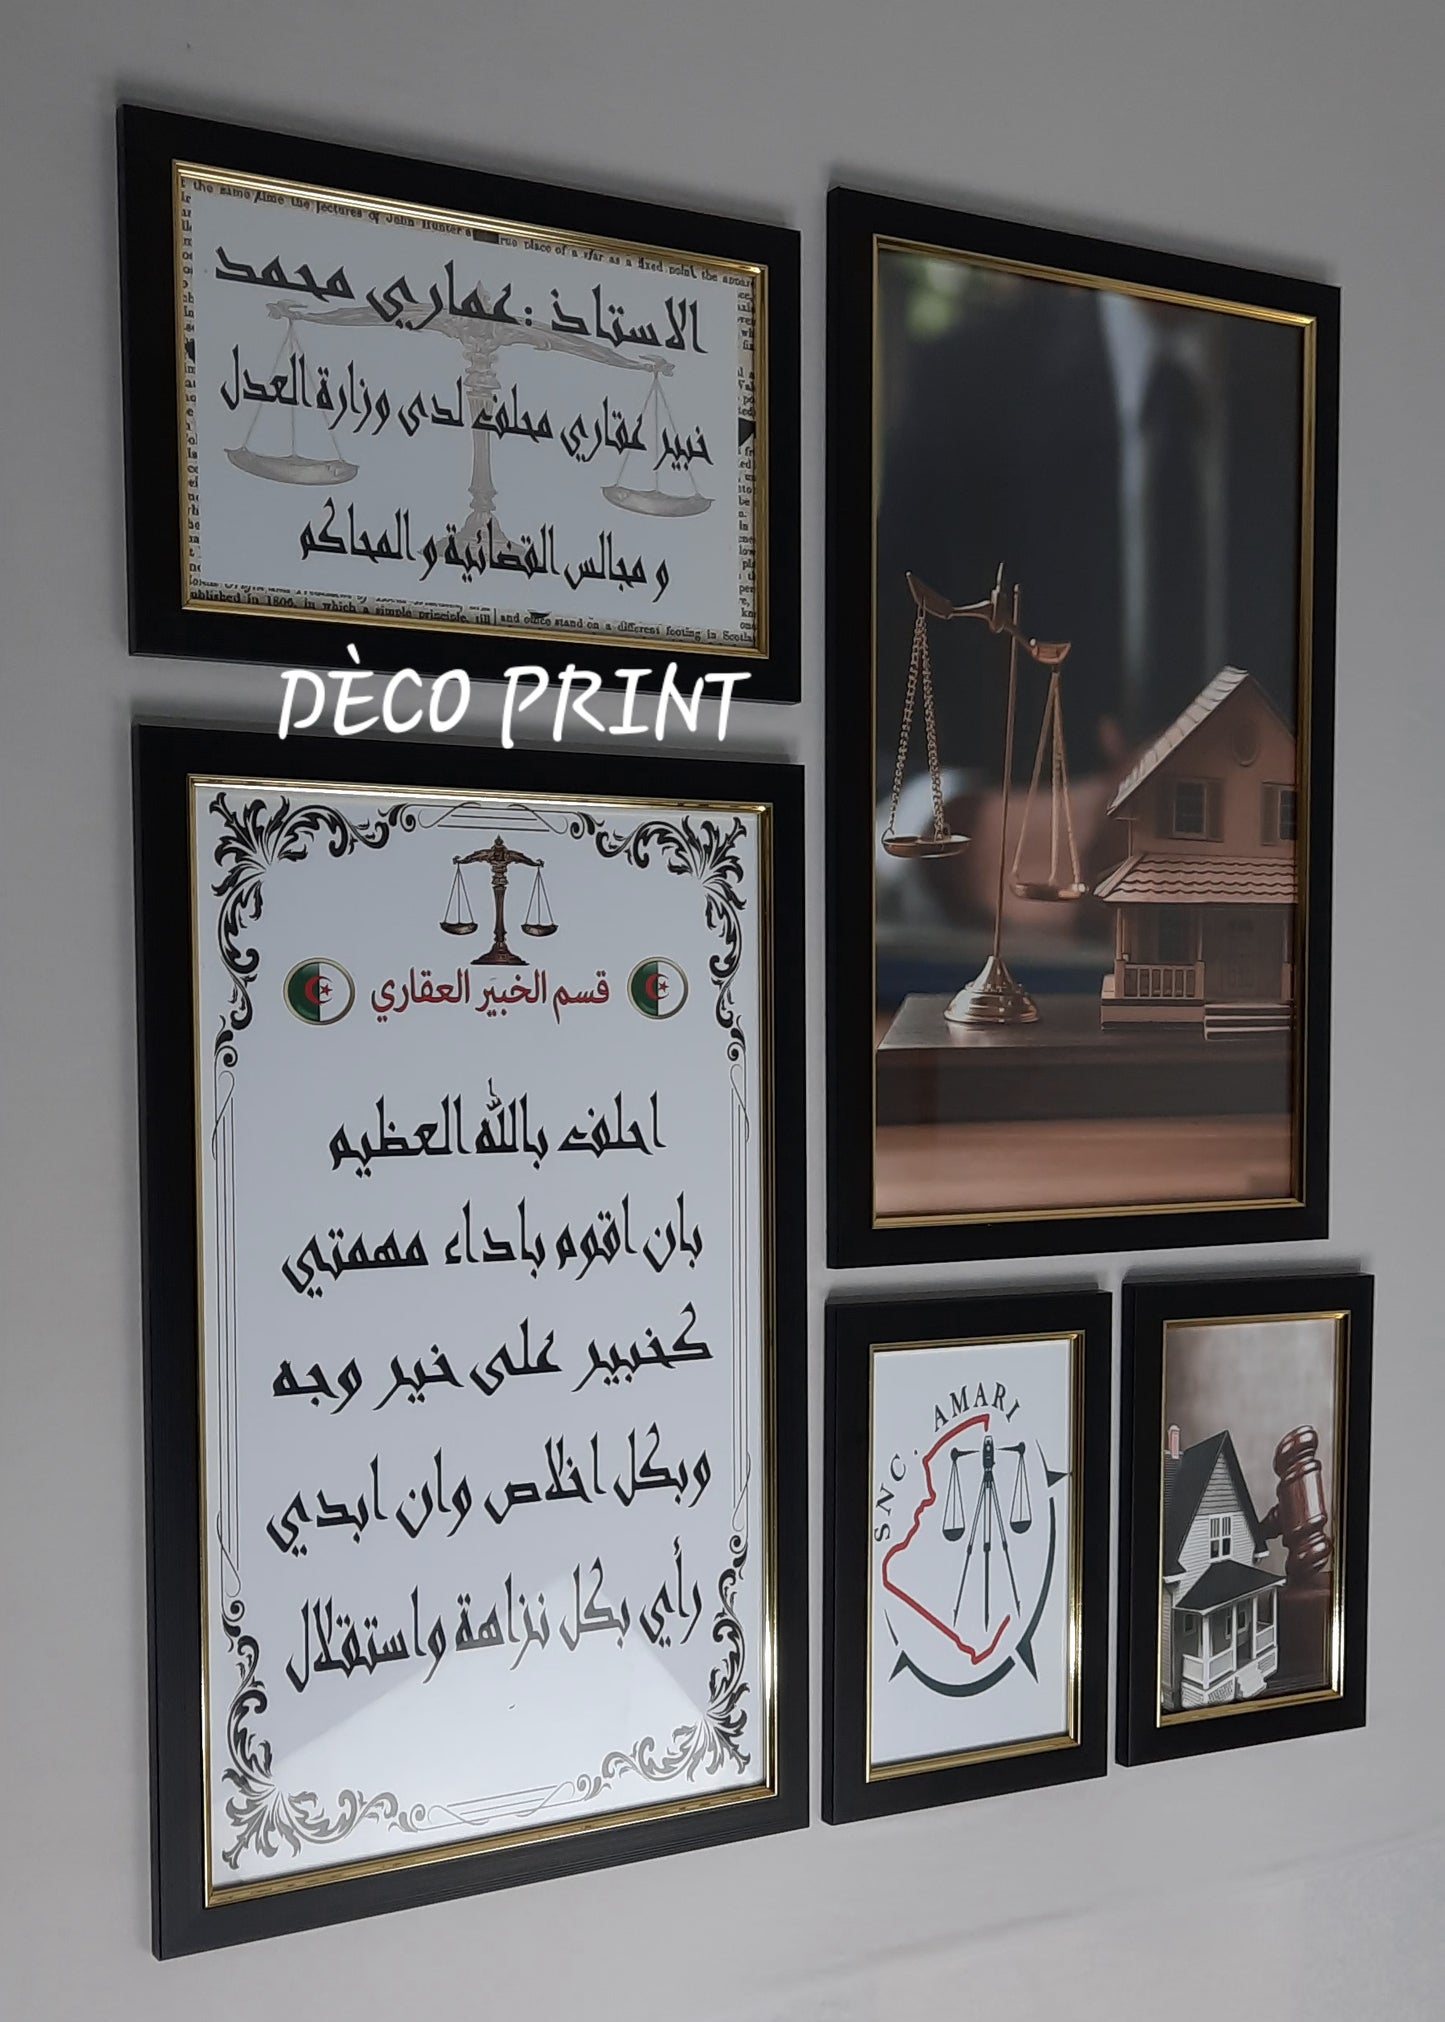 the same time the lectures of John Hunter
place of a star as a fixed point the
الاستاذ : عماري محمد
خبير عقاري محلف لدى وزارة العدل
و مجالس القضائية و المحاكم
ublished in 1806, in which a simple principle, till
and office stand on a different footing in Scotla
DÈCO PRINT
قسم الخبير العقاري
احلف بالله العظيم
بان اقوم باداء مهمتي
كخبير على خير وجه
وبكل اخلاص وان ابدي
رأي بكل نزاهة واستقلال
SNC. AMARI